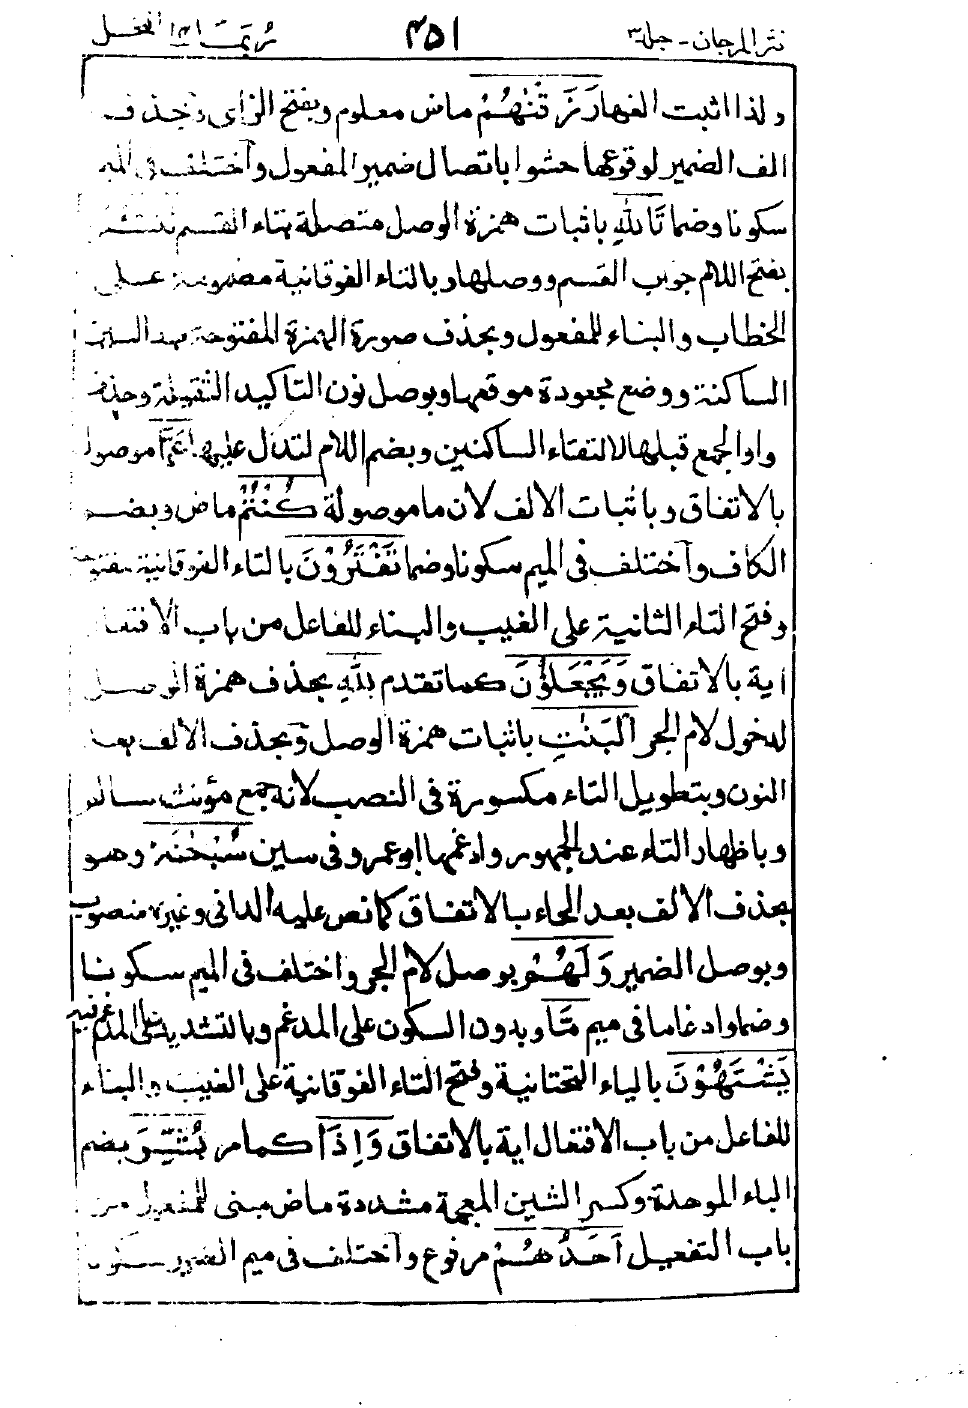 نثر المرجان - جلد ۳ ۴۵۱ ربما ۱۴ النحل
ولذا اثبت الفها رَزَقْنٰهُمْ ماض معلوم وبفتح الزاى وحذف
الف الضمير لوقوعها حشوا باتصال ضمير المفعول وآختلف فى الميم
سكونا وضما تَاللّٰهِ باثبات همزة الوصل متصلة بتاء القسم لَتُسْئَلُنَّ
بفتح اللام جواب القسم ووصلها وبالتاء الفوقانية مضمومة على
الخطاب والبناء للمفعول وبحذف صورة الهمزة المفتوحة بعد السين
الساكنة ووضع مجعودة موقعها وبوصل نون التاكيد الثقيلة وحذف
واو الجمع قبلها لالتقاء الساكنين وبضم اللام لتدل عليها عَمَّا موصول
بالاتفاق وباثبات الالف لان ما موصولة كُنْتُمْ ماض وبضم
الكاف وآختلف فى الميم سكونا وضما تَفْتَرُوْنَ بالتاء الفوقانية مفتوحة
وفتح التاء الثانية على الغيب والبناء للفاعل من باب الافتعال
اية بالاتفاق وَيَجْعَلُوْنَ كما تقدم لِلّٰهِ بحذف همزة الوصل
لدخول لام الجر الْبَنٰتِ باثبات همزة الوصل وَبحذف الالف بعد
النون وبتطويل التاء مكسورة فى النصب لانه جمع مؤنث سالم
وباظهار التاء عند الجمهور وادغمها ابو عمرو فى سين سُبْحٰنَهٗ وهو
بحذف الالف بعد الحاء بالاتفاق كما نص عليه الدانى وغيره منصوب
وبوصل الضمير وَلَهُمْ بوصل لام الجر واختلف فى الميم سكونا
وضما وادغاما فى ميم مَّا وبدون السكون على المدغم وبالتشديد على المدغم فيه
يَشْتَهُوْنَ بالياء التحتانية وفتح التاء الفوقانية على الغيب والبناء
للفاعل من باب الافتعال اية بالاتفاق وَاِذَا كما مر بُشِّرَ بضم
الباء الموحدة وكسر الشين المعجمة مشددة ماض مبنى للمفعول من
باب التفعيل اَحَدُهُمْ مرفوع وآختلف فى ميم الضمير سكونا